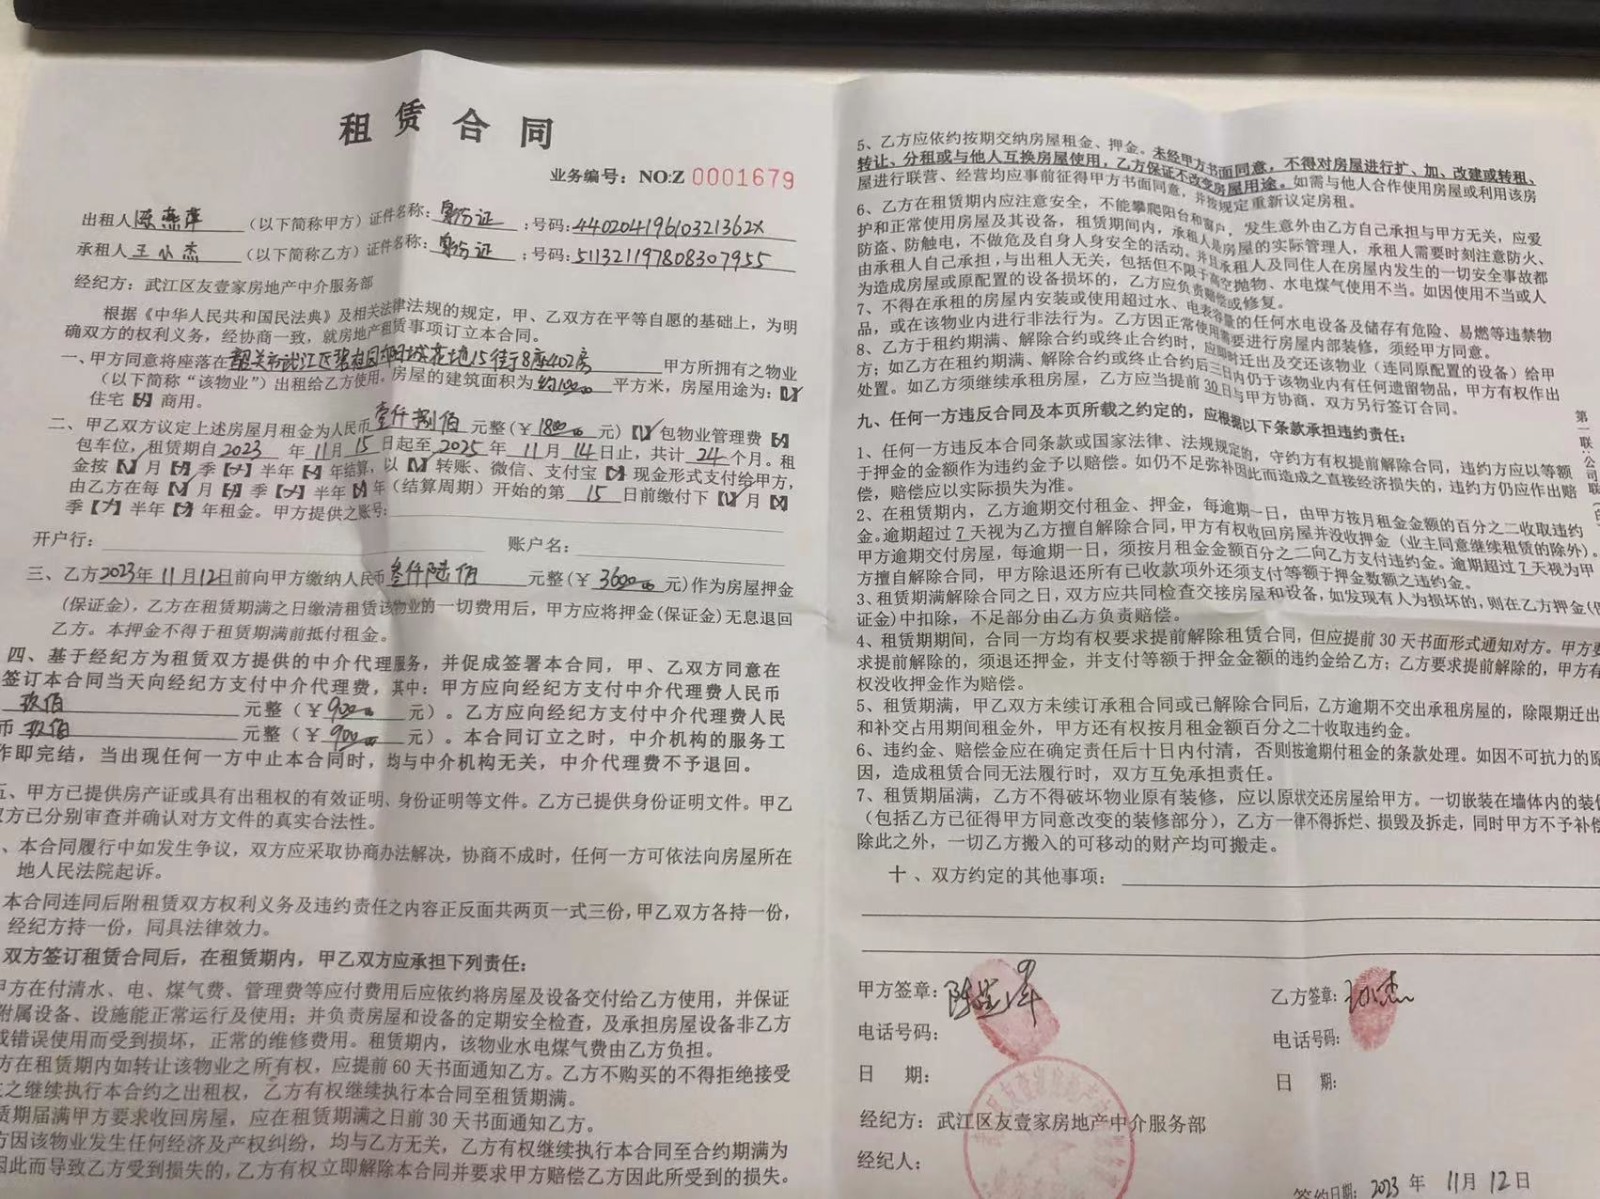 租赁合同
业务编号：NO:Z 0001679
出租人陈燕萍（以下简称甲方）证件名称：身份证：号码：44020419610321362X
承租人王小杰（以下简称乙方）证件名称：身份证：号码：511321197808307955
经纪方：武江区友壹家房地产中介服务部
根据《中华人民共和国民法典》及相关法律法规的规定，甲、乙双方在平等自愿的基础上，为明
确双方的权利义务，经协商一致，就房地产租赁事项订立本合同。
一、甲方同意将座落在韶关市武江区碧桂园太阳城花地15街8座402房甲方所拥有之物业
（以下简称“该物业”）出租给乙方使用，房屋的建筑面积为约100平方米，房屋用途为：【√】
住宅【×】商用。
二、甲乙双方议定上述房屋月租金为人民币壹仟捌佰元整（￥1800元）【√】包物业管理费【×】
包车位，租赁期自2023年11月15日起至2025年11月14日止，共计24个月。租
金按【√】月【×】季【×】半年【×】年结算，以【√】转账、微信、支付宝【×】现金形式支付给甲方，
由乙方在每【√】月【×】季【×】半年【×】年（结算周期）开始的第15日前缴付下【√】月【×】
季【×】半年【×】年租金。甲方提供之账号：
开户行：账户名：
三、乙方2023年11月12日前向甲方缴纳人民币叁仟陆佰元整（￥3600元）作为房屋押金
(保证金)，乙方在租赁期满之日缴清租赁该物业的一切费用后，甲方应将押金(保证金)无息退回
乙方。本押金不得于租赁期满前抵付租金。
四、基于经纪方为租赁双方提供的中介代理服务，并促成签署本合同，甲、乙双方同意在
签订本合同当天向经纪方支付中介代理费，其中：甲方应向经纪方支付中介代理费人民币
玖佰元整（￥900元）。乙方应向经纪方支付中介代理费人民
币玖佰元整（￥900元）。本合同订立之时，中介机构的服务工
作即完结，当出现任何一方中止本合同时，均与中介机构无关，中介代理费不予退回。
、甲方已提供房产证或具有出租权的有效证明、身份证明等文件。乙方已提供身份证明文件。甲乙
方已分别审查并确认对方文件的真实合法性。
、本合同履行中如发生争议，双方应采取协商办法解决，协商不成时，任何一方可依法向房屋所在
地人民法院起诉。
本合同连同后附租赁双方权利义务及违约责任之内容正反面共两页一式三份，甲乙双方各持一份，
经纪方持一份，同具法律效力。
双方签订租赁合同后，在租赁期内，甲乙双方应承担下列责任：
甲方在付清水、电、煤气费、管理费等应付费用后应依约将房屋及设备交付给乙方使用，并保证
附属设备、设施能正常运行及使用；并负责房屋和设备的定期安全检查，及承担房屋设备非乙方
或错误使用而受到损坏，正常的维修费用。租赁期内，该物业水电煤气费由乙方负担。
方在租赁期内如转让该物业之所有权，应提前60天书面通知乙方。乙方不购买的不得拒绝接受
之继续执行本合约之出租权，乙方有权继续执行本合同至租赁期满。
赁期届满甲方要求收回房屋，应在租赁期满之日前30天书面通知乙方。
方因该物业发生任何经济及产权纠纷，均与乙方无关，乙方有权继续执行本合同至合约期满为
因此而导致乙方受到损失的，乙方有权立即解除本合同并要求甲方赔偿乙方因此所受到的损失。
5、乙方应依约按期交纳房屋租金、押金。未经甲方书面同意，不得对房屋进行扩、加、改建或转租、
转让、分租或与他人互换房屋使用，乙方保证不改变房屋用途。如需与他人合作使用房屋或利用该房
屋进行联营、经营均应事前征得甲方书面同意，并按规定重新议定房租。
6、乙方在租赁期内应注意安全，不能攀爬阳台和窗户，发生意外由乙方自己承担与甲方无关，应爱
护和正常使用房屋及其设备，租赁期间内，承租人是房屋的实际管理人，承租人需要时刻注意防火、
防盗、防触电，不做危及自身人身安全的活动。并且承租人及同住人在房屋内发生的一切安全事故都
由承租人自己承担，与出租人无关，包括但不限于高空抛物、水电煤气使用不当。如因使用不当或人
为造成房屋或原配置的设备损坏的，乙方应负责赔偿或修复。
7、不得在承租的房屋内安装或使用超过水、电表容量的任何水电设备及储存有危险、易燃等违禁物
品，或在该物业内进行非法行为。乙方因正常使用需要进行房屋内部装修，须经甲方同意。
8、乙方于租约期满、解除合约或终止合约时，应即时迁出及交还该物业（连同原配置的设备）给甲
方；如乙方在租约期满、解除合约或终止合约后三日内仍于该物业内有任何遗留物品，甲方有权作出
处置。如乙方须继续承租房屋，乙方应当提前30日与甲方协商，双方另行签订合同。
九、任何一方违反合同及本页所载之约定的，应根据以下条款承担违约责任：
1、任何一方违反本合同条款或国家法律、法规规定的，守约方有权提前解除合同，违约方应以等额
于押金的金额作为违约金予以赔偿。如仍不足弥补因此而造成之直接经济损失的，违约方仍应作出赔
偿，赔偿应以实际损失为准。
2、在租赁期内，乙方逾期交付租金、押金，每逾期一日，由甲方按月租金金额的百分之二收取违约
金。逾期超过7天视为乙方擅自解除合同，甲方有权收回房屋并没收押金（业主同意继续租赁的除外）。
甲方逾期交付房屋，每逾期一日，须按月租金金额百分之二向乙方支付违约金。逾期超过7天视为甲
方擅自解除合同，甲方除退还所有已收款项外还须支付等额于押金数额之违约金。
3、租赁期满解除合同之日，双方应共同检查交接房屋和设备，如发现有人为损坏的，则在乙方押金(保
证金)中扣除，不足部分由乙方负责赔偿。
4、租赁期期间，合同一方均有权要求提前解除租赁合同，但应提前30天书面形式通知对方。甲方要
求提前解除的，须退还押金，并支付等额于押金金额的违约金给乙方；乙方要求提前解除的，甲方有
权没收押金作为赔偿。
5、租赁期满，甲乙双方未续订承租合同或已解除合同后，乙方逾期不交出承租房屋的，除限期迁出
和补交占用期间租金外，甲方还有权按月租金额百分之二十收取违约金。
6、违约金、赔偿金应在确定责任后十日内付清，否则按逾期付租金的条款处理。如因不可抗力的原
因，造成租赁合同无法履行时，双方互免承担责任。
7、租赁期届满，乙方不得破坏物业原有装修，应以原状交还房屋给甲方。一切嵌装在墙体内的装修
（包括乙方已征得甲方同意改变的装修部分），乙方一律不得拆烂、损毁及拆走，同时甲方不予补偿
除此之外，一切乙方搬入的可移动的财产均可搬走。
十、双方约定的其他事项：
第一联：公司联
甲方签章：陈燕萍
乙方签章：王小杰
电话号码：
电话号码：
日期：
日期：
经纪方：武江区友壹家房地产中介服务部
经纪人：
签约日期：2023年11月12日